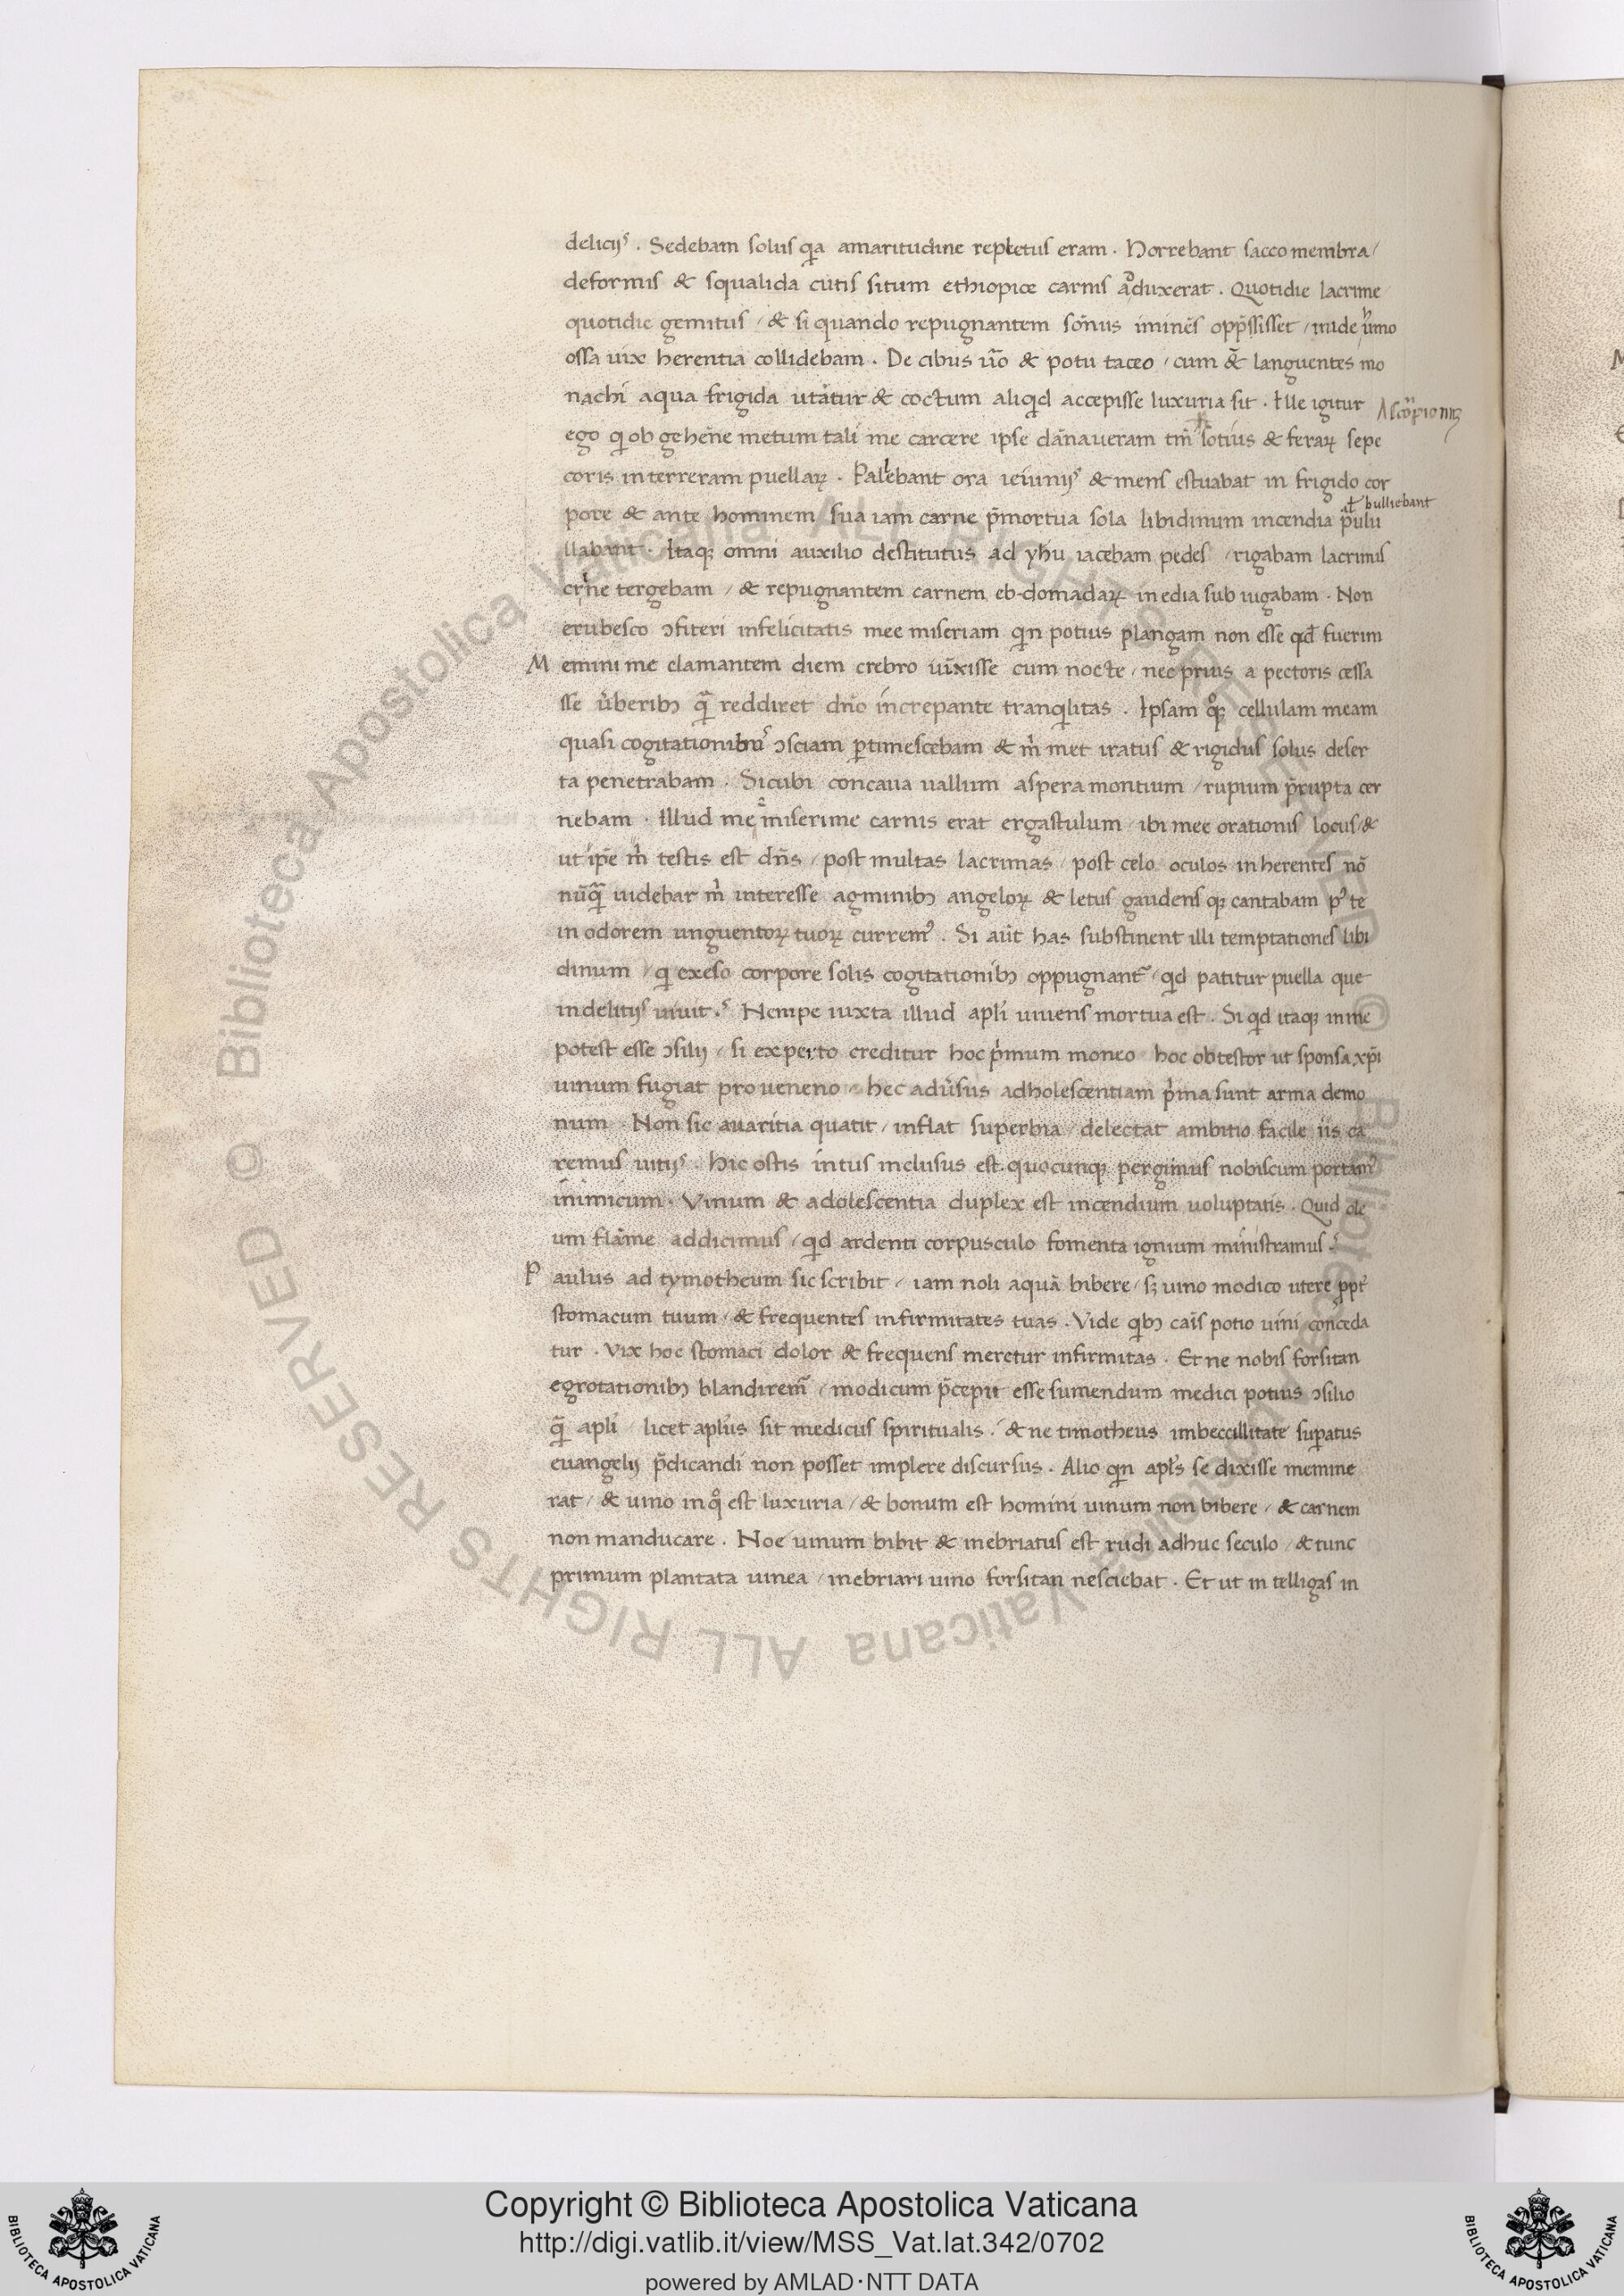 delicijs. Sedebam solus qia amaritudine repletus eram. Horrebant sacco membra/
deformis & squalida cutis situm ethiopice carnis aduxerat. Quotidie lacrime
quotidie gemitus / & si quando repugnantem som̄nus iminēs opp̄ssisset / nuda humo
ossa uix herentia collidebam. De cibus ūo & potu taceo / cum & languentes mo
nachi aqua frigida utātur & coctum aliqid accepisse luxuria sit. Ille igitur
scorpionum
ego qi ob gehēne metum tali me carcere ipse dānaueram tm̄ sotius & feraꝝ sepe
coris interreram puellaꝝ. Palebant ora ieiunijs & mens estuabat in frigido cor
al' bulliebant
pore & ante hominem sua iam carne p̄mortua sola libidinum incendia pulu
llabant. Itaqꝫ omni auxilio destitutus ad yhu iacebam pedes / rigabam lacrimis
crine tergebam / & repugnantem carnem eb-domadaꝝ inedia sub iugabam. Non
erubesco ɔfiteri infelicitatis mee miseriam qin potius plangam non esse qd fuerim
M emini me clamantem diem crebro iūxisse cum nocte / nec prius a pectoris cessa
sse u̓beribꝫ q̄ reddiret dn̄o increpante tranqilitas. Ipsam qꝫ cellulam meam
quasi cogitationibus ɔsciam ptimescebam & m̓ met iratus & rigidus solus deser
ta penetrabam. Sicubi concaua uallium aspera montium / rupium p̄rupta cer
nebam. Illud me miserime carnis erat ergastulum / ibi mee orationis locus / &
ut ip̄e m̓ testis est dn̄s / post multas lacrimas / post celo oculos inherentes nō
nūq̄ uidebar m̓ interesse agminibꝫ angeloꝝ & letus gaudens qꝫ cantabam p' te
in odorem unguentoꝝ tuoꝝ currem'. Si aūt has substinent illi temptationes libi
dinum / qi exeso corpore solis cogitationibꝫ oppugnant' / qid patitur puella que
in delitijs uiuit. Nempe iuxta illud apli uiuens mortua est. Si qid itaqꝫ in me
potest esse ɔsilij / si experto creditur hoc p̓mum moneo hoc obtestor ut sponsa xp̄i
uinum fugiat pro ueneno / hec adu̓sus adholescentiam p̓ma sunt arma demo
num. Non sic auaritia quatit / inflat superbia / delectat ambitio facile iis ca
remus uitijs. hic ostis intus inclusus est quocunqꝫ pergimus nobiscum portam'
inimicum. Vinum & adolescentia duplex est incendium uoluptatis. Quid ole
um flāme addicimus / qid ardenti corpusculo fomenta ignium ministramus
P aulus ad tymotheum sic scribit / iam noli aquā bibere / sꝫ uino modico utere ppt'
stomacum tuum / & frequentes infirmitates tuas. Vide qibꝫ cais potio uini conceda
tur. Vix hoc stomaci dolor & frequens meretur infirmitas. Et ne nobis forsitan
egrotationibꝫ blandirem' / modicum p̄cepit esse sumendum medici potius ɔsilio
q̄ apli / licet aplus sit medicus spiritualis. & ne timotheus imbeccillitate supatus
euangelij p̄dicandi non posset implere discursus. Alio qin apls se dixisse memine
rat / & uino in qo est luxuria / & bonum est homini uinum non bibere / & carnem
non manducare. Noe uinum bibit & inebriatus est rudi adhuc seculo / & tunc
primum plantata uinea / inebriari uino forsitan nesciebat. Et ut in telligas in
© Biblioteca Apostolica Vaticana ALL RIGHTS RESERVED © Biblioteca Apostolica Vaticana ALL RIGHTS RESERVED
BIBLIOTECA APOSTOLICA VATICANA
Copyright © Biblioteca Apostolica Vaticana
http://digi.vatlib.it/view/MSS_Vat.lat.342/0702
powered by AMLAD·NTT DATA
BIBLIOTECA APOSTOLICA VATICANA